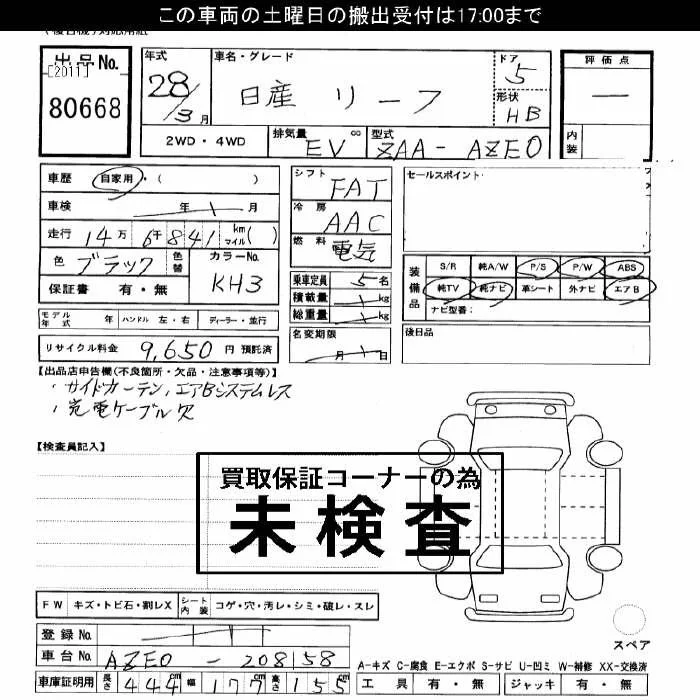 この車両の土曜日の搬出受付は17:00まで
出品No.
[2011]
80668
年式
28/3月
車名・グレード
日産 リーフ
ドア
5
形状
HB
評価点
一
内装
2WD・4WD
排気量
EV
cc
型式
ZAA-AZE0
車歴 自家用・( )
車検 年 月
走行 14万 6千841 km マイル( )
色 ブラック 色替
カラーNo.
KH3
保証書 有・無
シフト
FAT
冷房
AAC
燃料
電気
乗車定員 5名
積載量 kg
総重量 kg
セールスポイント
装備品
S/R 純A/W P/S P/W ABS
純TV 純ナビ 革シート 外ナビ エアB
ナビ型番:
モデル年式 年 ハンドル 左・右 ディーラー・並行
リサイクル料金 9,650 円 預託済
名変期限
月 日
後日品
【出品店申告欄(不良箇所・欠品・注意事項等)】
・サイドカーテン、エアBシステムレス
・充電ケーブル欠
【検査員記入】
買取保証コーナーの為
未検査
FW キズ・トビ石・割レX
シート内装 コゲ・穴・汚レ・シミ・破レ・スレ
登録No.
車台No. AZE0-208158
車庫証明用 長さ 444cm 幅 177cm 高さ 155cm
スペア
A-キズ C-腐食 E-エクボ S-サビ U-凹ミ W-補修 XX-交換済
工具 有・無 ジャッキ 有・無